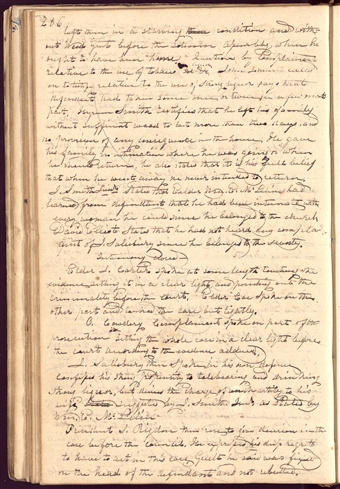 286
left them in a starving condition and with
out wood just before the Solomon Assembly, when he
ought to have been home. Questions by Complainant
relative to the use of tobacco &c &c. John Lewis called
on to testify relative to the use of strong liquor, says that
Defendant had to him some time or times in a part
part, Hyrum Smith testified that he left his family
without sufficient wood to last more than two days, and
no provision of any consequence in the house. He gave
his family no intimation where he was going or when
he should return, he also states that it is his full belief
that when he went away he never intended to return.
J. Smith Junr. States that Elder Wm. E. McLellin had
learned from Defendant that he had been intimate with
every woman he could since he belonged to the church
David Elliott States that he had not heard any complai
aint of J. Salisbury since he belonged to the society.
Testimony closed
Elder J. Carter spoke at some length touching the
evidence, setting it in a clear light and pointing out the
criminality before the court, Elder Coe spoke on the
other part and touched the case but lightly.
O. Cowdery Complainant spoke on part of the
prosecution setting the whole case in a clear light before
the court according to the evidence adduced,
J. Salisbury then spoke in his own defence
confessed his propensity to talebearing and drinking
strong liquor, but denies the charge of unchastity to his
wife suggested by J. Smith Junr. as stated by
Wm. E. McLellin
President S. Rigdon then rose to give decision in the
case before the Councils. He expressed his deep regrets
to have to act in this case. Guilt he said was fixed
on the head of the defendant and not rebutted.